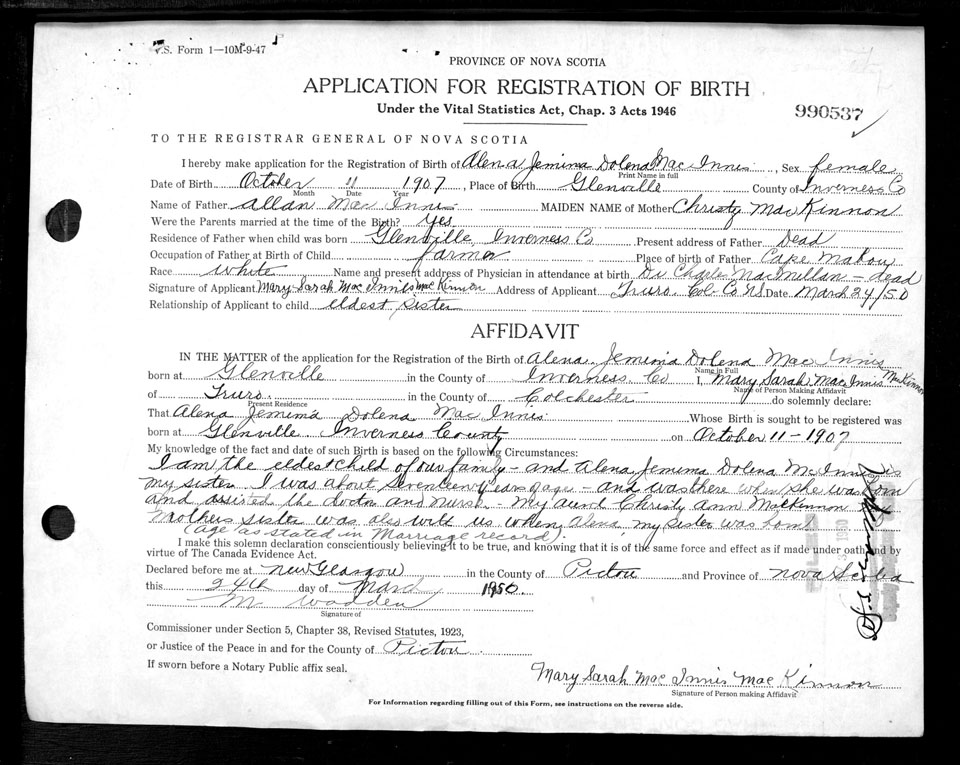 V.S. Form 1—10M-9-47
PROVINCE OF NOVA SCOTIA
APPLICATION FOR REGISTRATION OF BIRTH
Under the Vital Statistics Act, Chap. 3 Acts 1946
990537
TO THE REGISTRAR GENERAL OF NOVA SCOTIA
I hereby make application for the Registration of Birth of Alena Jemima Dolena Mac Innis, Sex female
Print Name in full
Date of Birth October 11 1907, Place of Birth Glenville County of Inverness Co
Month Date Year
Name of Father Allan Mac Innis MAIDEN NAME of Mother Christy MacKinnon
Were the Parents married at the time of the Birth? Yes
Residence of Father when child was born Glenville, Inverness Co Present address of Father Dead
Occupation of Father at Birth of Child farmer Place of birth of Father Cape Mabou
Race White Name and present address of Physician in attendance at birth Dr Charles MacMillan - dead
Signature of Applicant Mary Sarah Mac Innis Mac Kinnon Address of Applicant Truro Col-Co NS Date March 24/50
Relationship of Applicant to child eldest sister
AFFIDAVIT
IN THE MATTER of the application for the Registration of the Birth of Alena Jemima Dolena Mac Innis
Name in Full
born at Glenville in the County of Inverness Co I, Mary Sarah Mac Innis MacKinnon
Name of Person Making Affidavit
of Truro in the County of Colchester do solemnly declare:
Present Residence
That Alena Jemima Dolena Mac Innis Whose Birth is sought to be registered was
born at Glenville Inverness County on October 11-1907
My knowledge of the fact and date of such Birth is based on the following Circumstances:
I am the eldest child of our family - and Alena Jemima Dolena McInnis is
my sister. I was about Seventeen years of age - and was there when she was born
and assisted the doctor and nurse - My aunt Christy Ann MacKinnon
Mothers sister was also with us when Alena my sister was born
(age as stated in Marriage record).
I make this solemn declaration conscientiously believing it to be true, and knowing that it is of the same force and effect as if made under oath and by
virtue of The Canada Evidence Act.
Declared before me at New Glasgow in the County of Pictou and Province of Nova Scotia
this 24th day of March 1950.
M Wadden
Signature of
Commissioner under Section 5, Chapter 38, Revised Statutes, 1923,
or Justice of the Peace in and for the County of Pictou
If sworn before a Notary Public affix seal.
Mary Sarah Mac Innis Mac Kinnon
Signature of Person making Affidavit
For Information regarding filling out of this Form, see instructions on the reverse side.